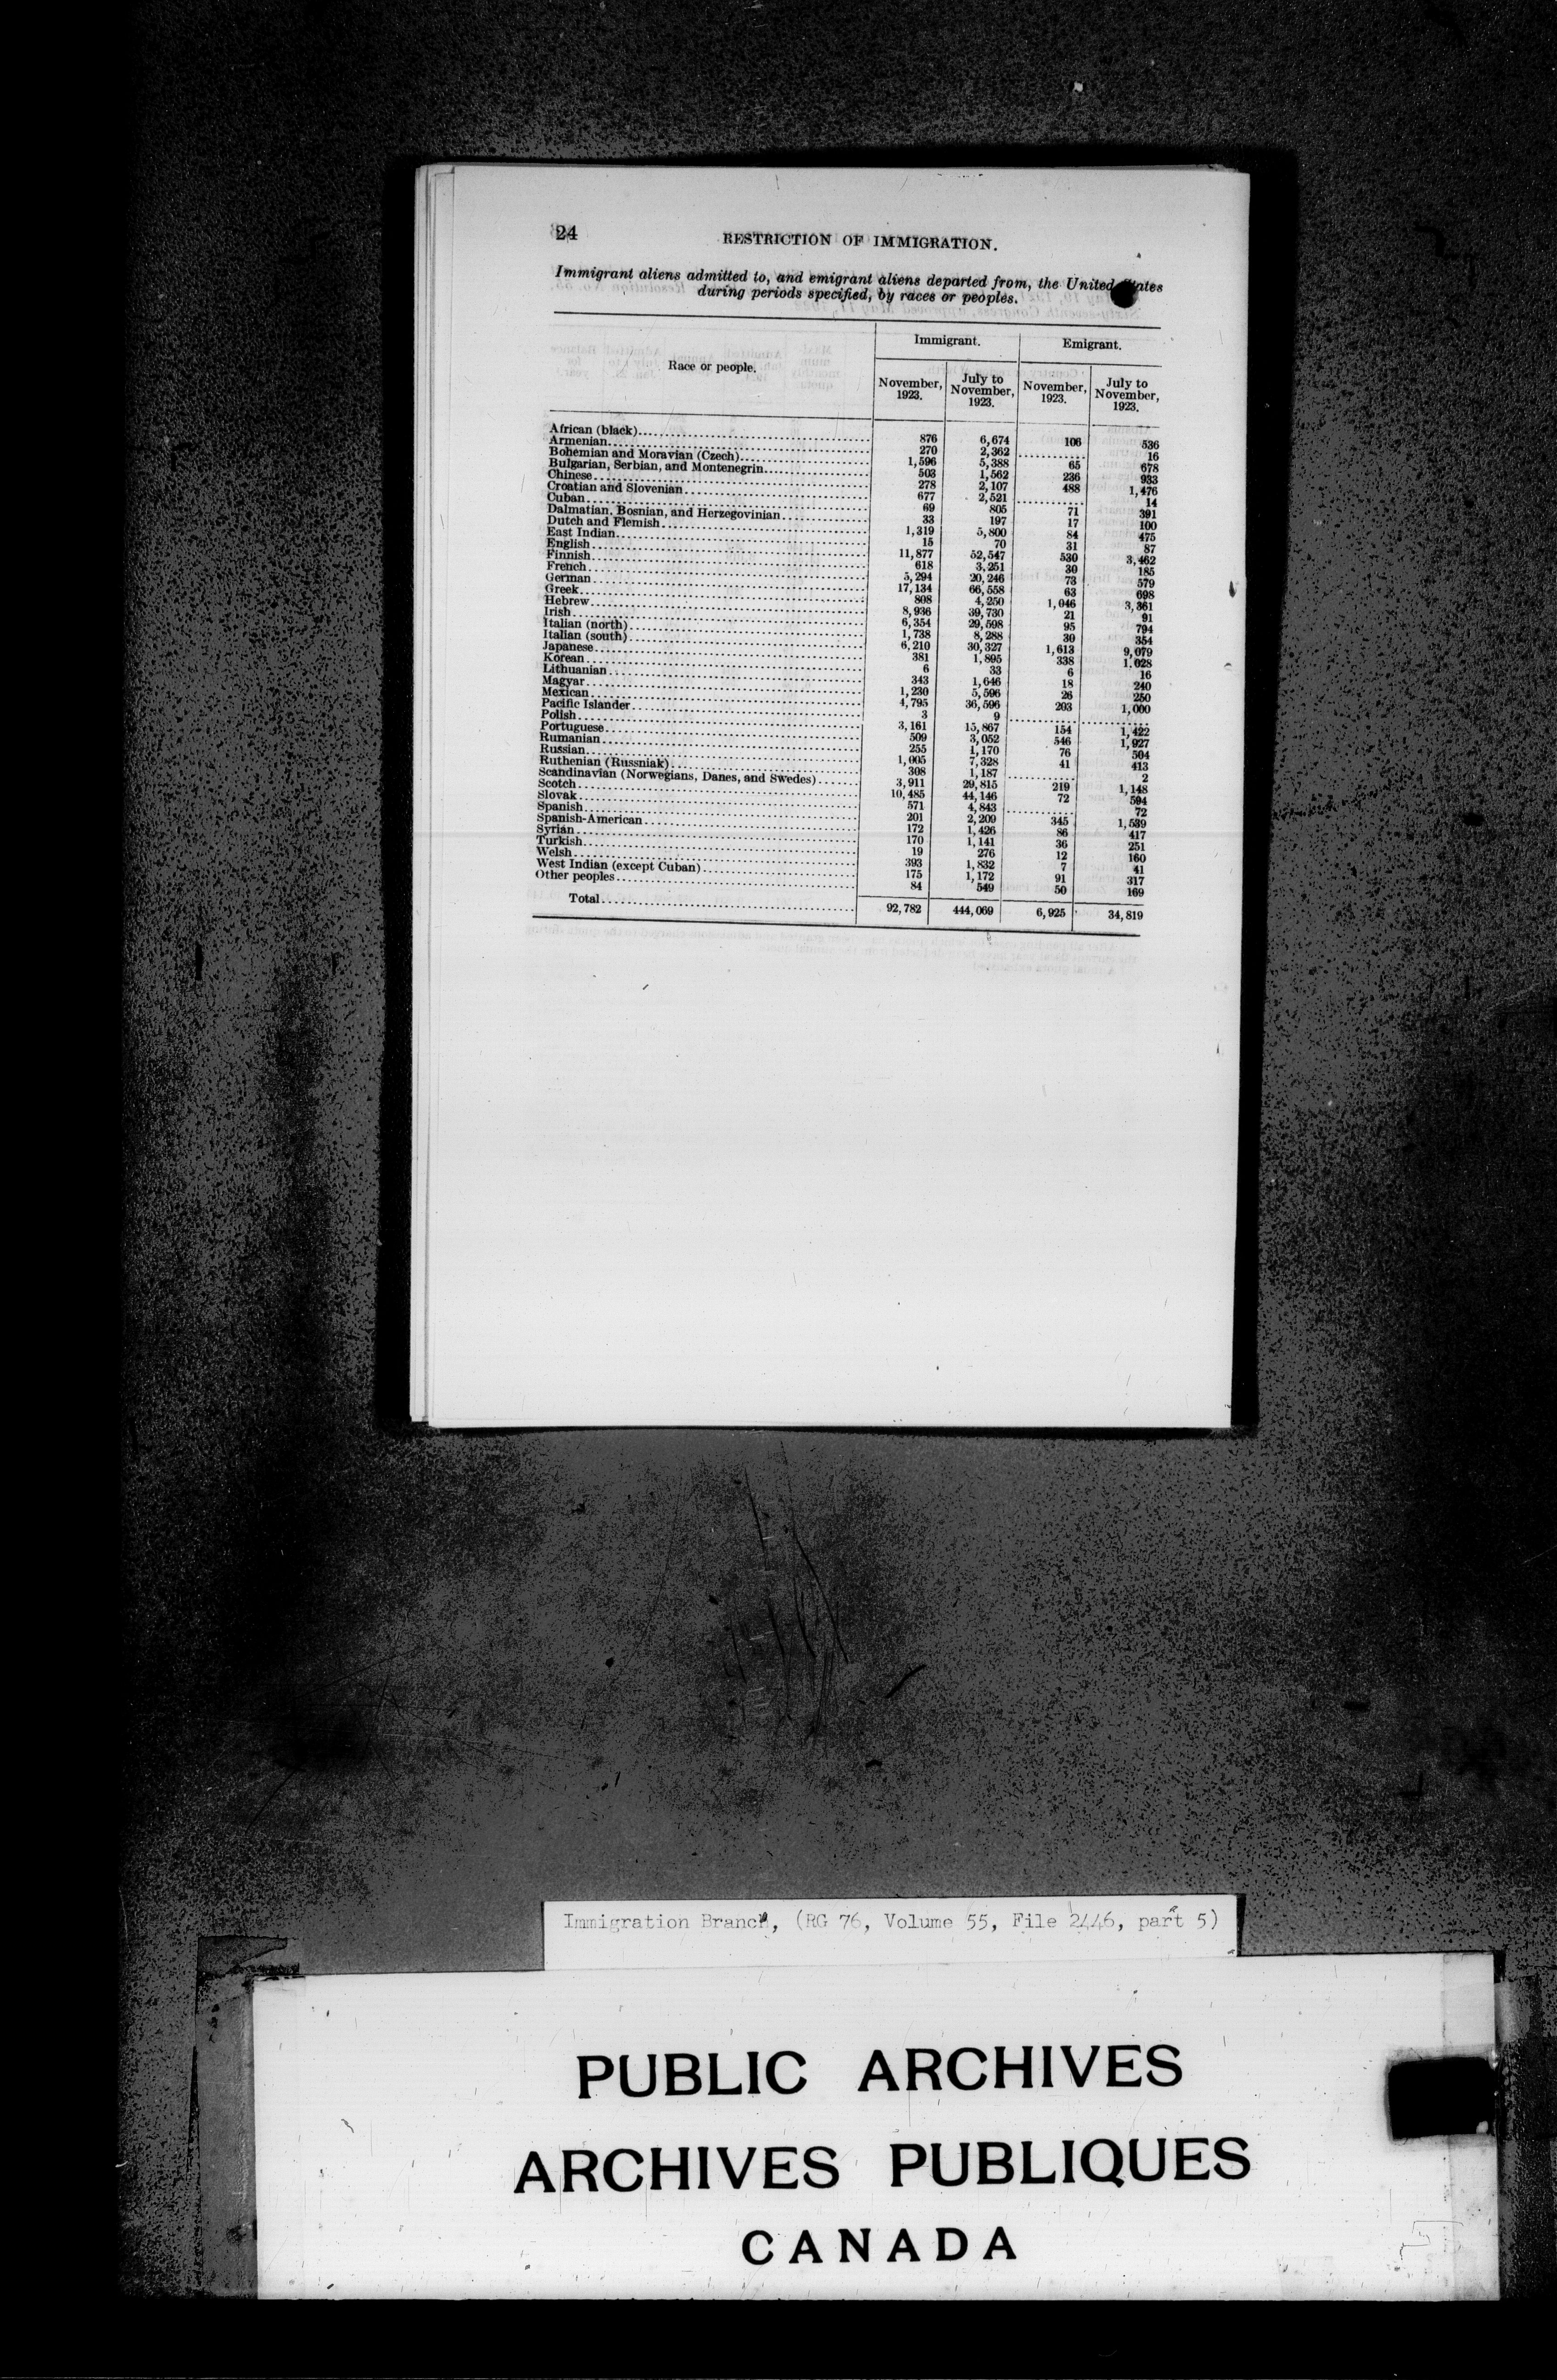 24
RESTRICTION OF IMMIGRATION.
Immigrant aliens admitted to, and emigrant aliens departed from, the United States
during periods specified, by races or peoples.
Race or people. Immigrant. Emigrant.
November, 1923. July to November, 1923. November, 1923. July to November, 1923.
African (black) 876 6,674 106 536
Armenian 270 2,362 ........ 16
Bohemian and Moravian (Czech) 1,596 5,388 65 678
Bulgarian, Serbian, and Montenegrin 503 1,562 236 933
Chinese 278 2,107 488 1,476
Croatian and Slovenian 677 2,521 ........ 14
Cuban 69 805 71 391
Dalmatian, Bosnian, and Herzegovinian 33 197 17 100
Dutch and Flemish 1,319 5,800 84 475
East Indian 15 70 31 87
English 11,877 52,547 530 3,462
Finnish 618 3,251 30 185
French 5,294 20,246 73 579
German 17,134 66,558 63 698
Greek 808 4,250 1,046 3,361
Hebrew 8,936 39,730 21 91
Irish 6,354 29,598 95 794
Italian (north) 1,738 8,288 30 354
Italian (south) 6,210 30,327 1,613 9,079
Japanese 381 1,895 338 1,028
Korean 6 33 6 16
Lithuanian 343 1,646 18 240
Magyar 1,230 5,596 26 250
Mexican 4,795 36,596 203 1,000
Pacific Islander 3 9 ........ ........
Polish 3,161 15,867 154 1,422
Portuguese 509 3,052 546 1,927
Rumanian 255 1,170 76 504
Russian 1,005 7,328 41 413
Ruthenian (Russniak) 308 1,187 ........ 2
Scandinavian (Norwegians, Danes, and Swedes) 3,911 29,815 219 1,148
Scotch 10,485 44,146 72 594
Slovak 571 4,843 ........ 72
Spanish 201 2,209 345 1,539
Spanish-American 172 1,426 86 417
Syrian 170 1,141 36 251
Turkish 19 276 12 160
Welsh 393 1,832 7 41
West Indian (except Cuban) 175 1,172 91 317
Other peoples 84 549 50 169
Total 92,782 444,069 6,925 34,819
Immigration Branch, (RG 76, Volume 55, File 2446, part 5)
PUBLIC ARCHIVES
ARCHIVES PUBLIQUES
CANADA